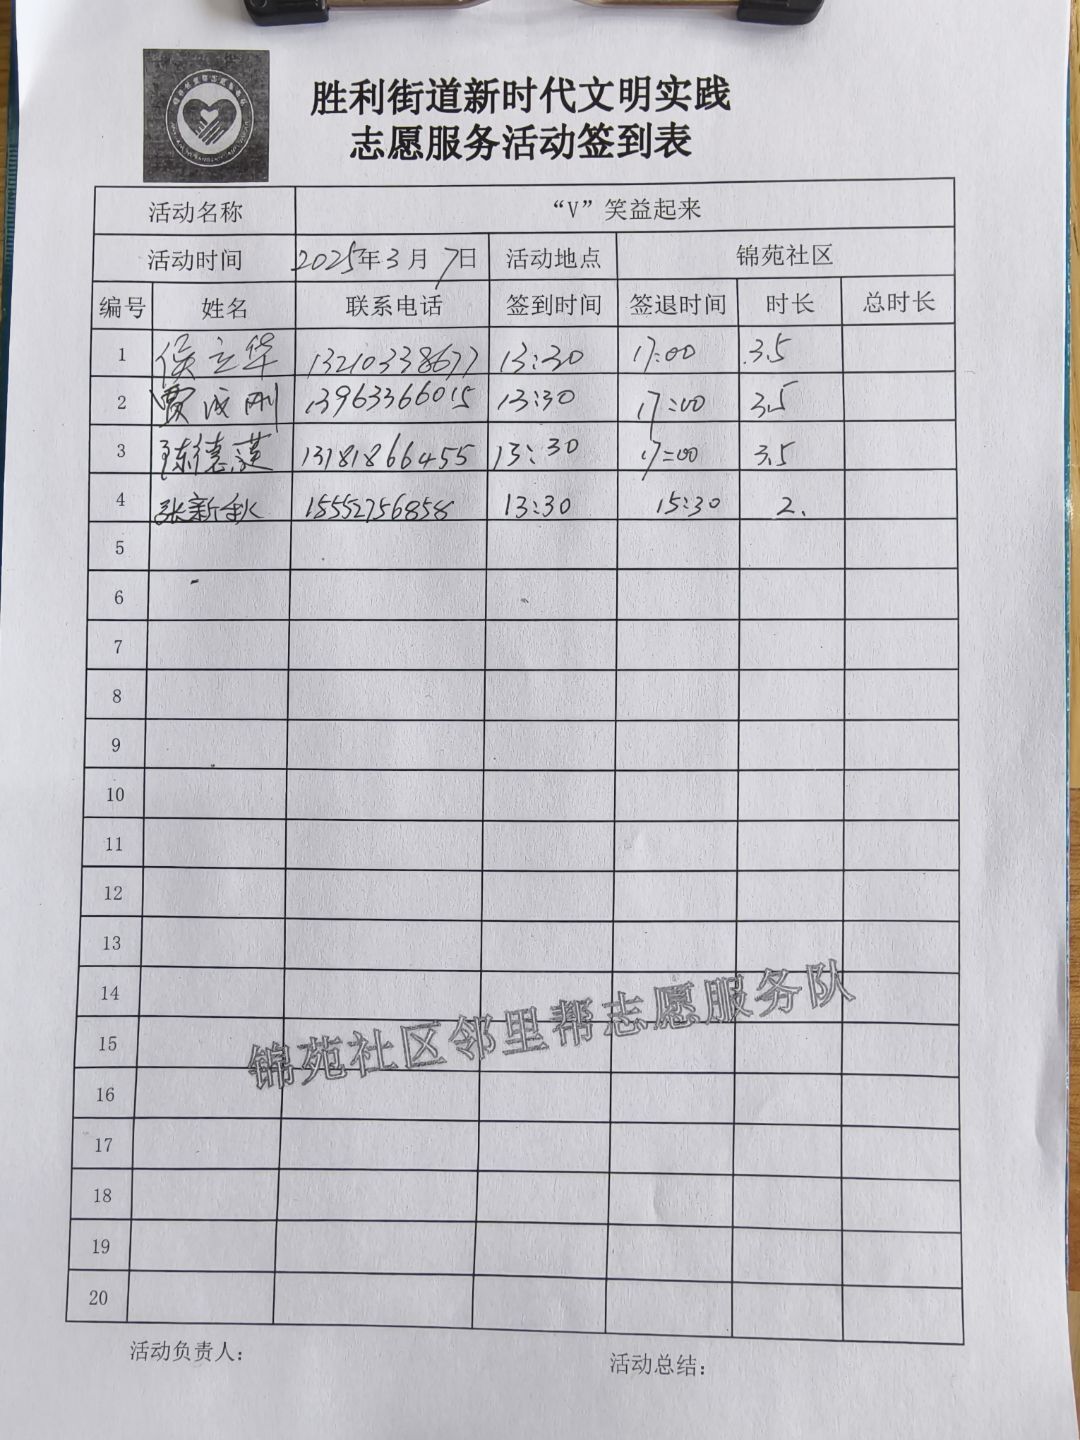 胜利街道新时代文明实践
志愿服务活动签到表
活动名称 “V”笑益起来
活动时间 2025年3月7日 活动地点 锦苑社区
编号 姓名 联系电话 签到时间 签退时间 时长 总时长
1 侯立华 13210338677 13:30 17:00 3.5
2 贾成刚 13963366015 13:30 17:00 3.5
3 德 13181866455 13:30 17:00 3.5
4 张新秋 15552756858 13:30 15:30 2.
5
6
7
8
9
10
11
12
13
14
锦苑社区邻里帮志愿服务队
15
16
17
18
19
20
活动负责人: 活动总结: